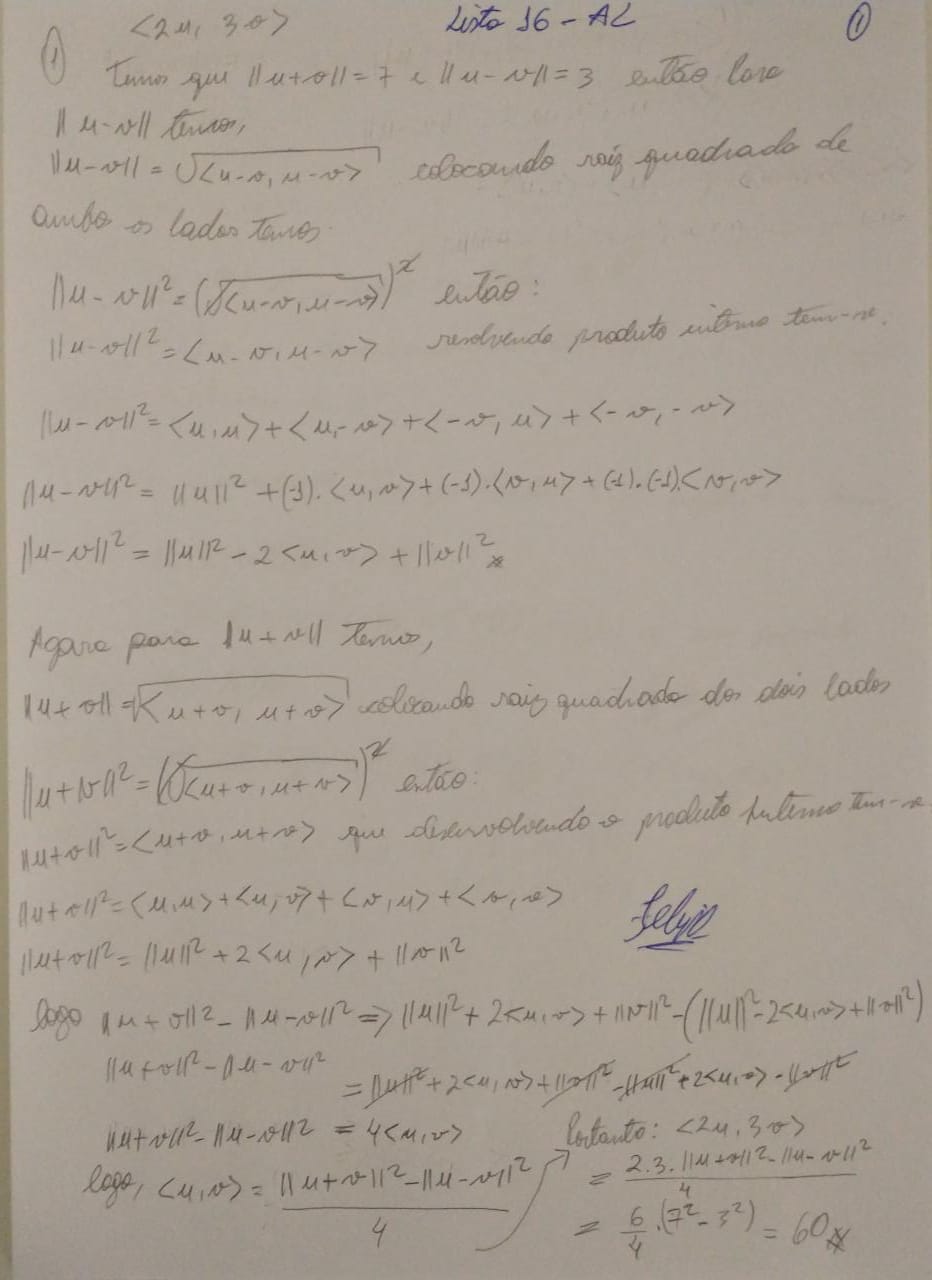 <2u, 3v> Lista 16 - AL ①
① temos que ||u+v|| = 7 e ||u-v|| = 3 então para
||u-v|| temos,
||u-v|| = √<u-v, u-v> colocando raiz quadrada de
ambo os lados temos.
||u-v||² = (√<u-v, u-v>)² então:
||u-v||² = <u-v, u-v> resolvendo produto interno tem-se.
||u-v||² = <u,u> + <u,-v> + <-v,u> + <-v,-v>
||u-v||² = ||u||² + (-1).<u,v> + (-1).<v,u> + (-1).(-1)<v,v>
||u-v||² = ||u||² - 2<u,v> + ||v||²
Agara para ||u+v|| temos,
||u+v|| = √<u+v, u+v> colocando raiz quadrada dos dois lados
||u+v||² = (√<u+v, u+v>)² então:
||u+v||² = <u+v, u+v> que desenvolvendo o produto interno tem-se
||u+v||² = <u,u> + <u,v> + <v,u> + <v,v>
||u+v||² = ||u||² + 2<u,v> + ||v||²
logo ||u+v||² - ||u-v||² => ||u||² + 2<u,v> + ||v||² - (||u||² - 2<u,v> + ||v||²)
||u+v||² - ||u-v||²
= ||u||² + 2<u,v> + ||v||² - ||u||² + 2<u,v> - ||v||²
||u+v||² - ||u-v||² = 4<u,v>
logo, <u,v> = (||u+v||² - ||u-v||²)/4
Portanto: <2u, 3v>
= (2.3.||u+v||² - ||u-v||²)/4
= 6/4 .(7² - 3²) = 60